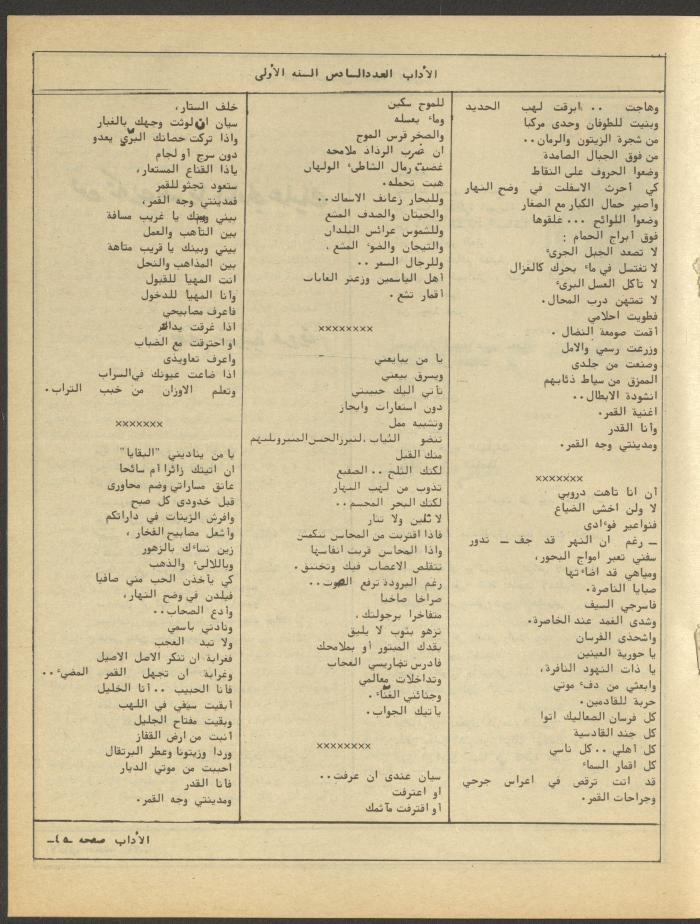 الأداب العددالسادس السنه الأولى
وهاجت .. ابرقت لهب الحديد
وبنيت للطوفان وحدى مركبا
من شجرة الزيتون والرمان..
من فوق الجبال الصامدة
وضعوا الحروف على النقاط
كي أحرث الاسفلت في وضح النهار
وأصير حمال الكبار مع الصغار
وضعوا اللوائح ... علقوها
فوق أبراج الحمام :
لا تصعد الجبل الجرىء
لا تغتسل في ماء بحرك كالغزال
لا تأكل العسل البرىء
لا تمتهن درب المحال.
فطويت احلامي
أقمت صومعة النضال .
وزرعت رسمي والامل
وصنعت من جلدى
الممزق من سياط ذئابهم
انشودة الابطال..
اغنية القمر.
وأنا القدر
ومدينتي وجه القمر.
×××××××
أن انا تاهت دروبي
لا ولن اخشى الضياع
فنواعير فوءادى
ــ رغم ان النهر قد جف ــ تدور
سفني تعبر امواج البحور،
ومياهي قد اضاءتها
صبايا الناصرة.
فاسرجي السيف
وشدى الغمد عند الخاصرة.
واشحذى الفرسان
يا حورية العينين
يا ذات النهود النافرة،
وابعثي من دفء موتي
حربة للقادمين.
كل فرسان الصعاليك اتوا
كل جند القادسية
كل أهلي ..كل ناسي
كل اقمار السماء
قد اتت ترقص في اعراس جرحي
وجراحات القمر.
للموج سكين
وماء يغسله
والصخر قرس الموج
ان ضرب الرذاذ ملامحه
غضبت رمال الشاطىء الولهان
هبت تحمله.
وللبحار زعانف الاسماك..
والحيتان والصدف المشع
وللشموس عرائس البلدان
والتيجان والضوء المشع .
وللرجال السمر ..
أهل الياسمين وزعتر الغابات
أقمار تشع .
××××××××
يا من يبايعني
ويسرق بيعتي
تأتي اليك حبيبتي
دون استعارات وايجاز
وتشبيه ممل
تنضو الثياب
منك القبل
لكنك الثلج .. الصقيع
تذوب من لهب النهار
لكنك البحر المجسم..
لا تلين ولا تثار
فاذا اقتربت من المحاسن تنكمش
واذا المحاسن قربت انفاسها
تتقلص الاعصاب فيك وتختنق.
رغم البرودة ترفع الصوت..
صراخا صاخبا
متفاخرا برجولتك.
تزهو بثوب لا يليق
بقدك المبتور أو بملامحك
فادرس تضاريسي العجاب
وتداخلات معالمي
وجنائني الغناء.
يأتيك الجواب.
××××××××
سيان عندى ان عرفت..
او اعترفت
أو اقترفت مآثمك
خلف الستار،
سيان ان لوثت وجهك بالغبار
واذا تركت حصانك البرّى يعدو
دون سرج أو لجام
ياذا القناع المستعار،
ستعود تجثو للقمر
فمدينتي وجه القمر،
بيني وبينك يا غريب مسافة
بين التأهب والعمل
بيني وبينك يا قريب متاهة
بين المذاهب والنحل
انت المهيأ للقبول
وأنا المهيأ للدخول
فاعرف مصابيحي
اذا غرقت يداك
او احترقت مع الضباب
واعرف تعاويذى
اذا ضاعت عيونك في السراب
وتعلم الاوزان من خبب التراب.
×××××××
يا من يناديني "البقايا"
ان اتيتك زائرا أم سائحا
عانق مساراتي وضم محاورى
قبل خدودى كل صبح
وافرش الزينات في داراتكم
وأشعل مصابيح الفخار ،
زين نساءك بالزهور
وباللآلىء والذهب
كي يأخذن الحب مني صافيا
فيلدن في وضح النهار،
وأدع الصحاب..
ونادني باسمي
ولا تبد العجب
فغرابة ان تنكر الاصل الاصيل
وغرابة ان تجهل القمر المضيء..
فأنا الحبيب ..أنا الخليل
أبقيت سيفي في اللهب
وبقيت مفتاح الجليل
أنبت من ارض القفار
وردا وزيتونا وعطر البرتقال
احببت من موتي الديار
فأنا القدر
ومدينتي وجه القمر.
الأداب صفحه ـ٤٥ـ